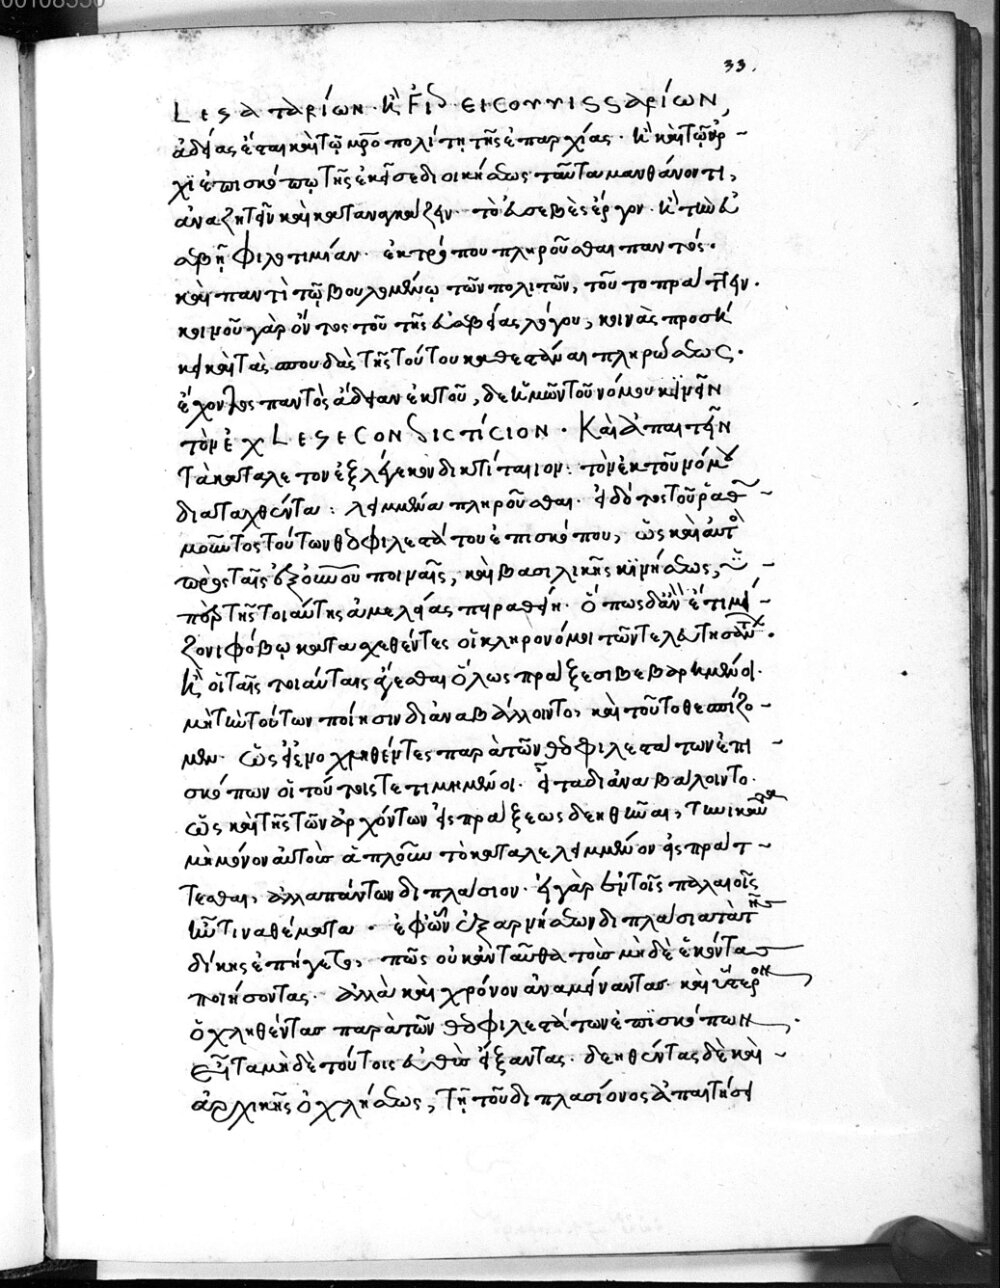 33.
Legatarίων. κ̀ Fιδεειcommissarίων,
ἀδείας ἔσται καὶ τῷ μητροπολίτῃ τῆς ἐπαρχίας. κ̀ καὶ τῷ ἀρ-
χιεπισκόπῳ τῆς ἐκεῖσε διοικήσεως ταῦτα μανθάνοντι,
ἀναζητεῖν καὶ καταναγκάζειν τὸ εὐσεβὲς ἔργον. κ̀ τὴν εὐ
σεβῆ φιλοτιμίαν. ἐκ τρόπου πληροῦσθαι παντός.
καὶ παντὶ τῷ βουλομένῳ τῶν πολιτῶν, τοῦτο πράττειν.
κοινοῦ γὰρ ὄντος τοῦ τῆς εὐσεβείας λόγου, κοινὰς προσή
κει καὶ τὰς σπουδὰς τῆς τούτου καθεστάναι πληρώσεως.
ἔχοντος παντὸς ἄδειαν ἐκ τοῦδε ἡμῶν τοῦ νόμου κινεῖν
τὸν ἐχ Lege Condicticion. Καὶ ἀπαιτεῖν
τὰ καταλε τον ἐξ λέγε κονδικτίτκιον: τὸν ἐκ τοῦ νόμου
διαταχθέντα: λειμμένα πληροῦσθαι. εἰδότος τοῦ ῥαθυ-
μοῦντος τούτων θεοφιλεστάτου ἐπισκόπου, ὡς καὶ αὐτὸς
πρὸς ταῖς ἐξ οὐρανοῦ ποιναῖς, καὶ βασιλικῆς κινήσεως,
ὑπὲρ τῆς τοιαύτης ἀμελείας πειραθείη. ὅπως δ' ἂν ἔτι μεί-
ζονι φόβῳ κατασχεθέντες οἱ κληρονόμοι τῶν τελευτησάντων.
κ̀ οἱ ταῖς τοιαύταις ἄγεσθαι ὅλως πράξεσι βεβαρημένοι.
μὴ τὴν τούτων ποίησιν διαναβάλλοιντο, καὶ τοῦτο θεσπίζο-
μεν. ὡς εἰ μονοχληθέντες παρὰ τῶν θεοφιλεστάτων ἐπι-
σκόπων οἱ τούτοις τετιμημένοι. εἶτα διαναβάλοιντο.
ὡς καὶ τῆς τῶν ἀρχόντων εἰσπράξεως δεηθῆναι, τηνικαῦτα
μὴ μόνον αὐτοὺς ἁπλοῦν τὸ καταλελειμμένον εἰσπράτ-
τεσθαι, ἀλλὰ πάντων διπλάσιον. εἰ γὰρ ἐν τοῖς παλαιοῖς
ἦν τινα θέματα. ἐφ' ὧν ἐξ ἀρνήσεων διπλάσια τὰ τῆς
δίκης ἐπήγετο, πῶς οὐ κἀνταῦθα τοὺς μηδὲ ἑκόντας
ποιήσοντας. ἀλλὰ καὶ χρόνον ἀναμείναντας. καὶ ὕστερον
ὀχληθέντας παρὰ τῶν θεοφιλεστάτων ἐπισκόπων.
εἶτα μηδὲ τούτοις εὐθὺς εἴξαντας. δεηθέντας δὲ καὶ
ἀρχικῆς ὀχλήσεως, τῇ τοῦ διπλασίονος ἀπαιτήσει